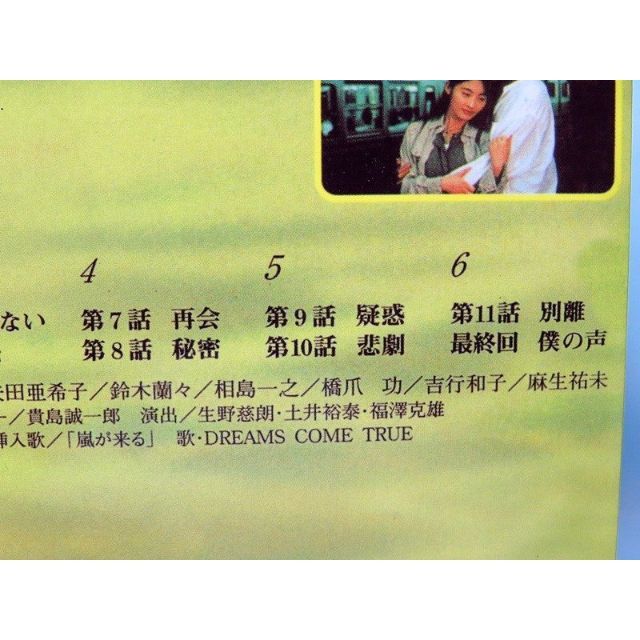 4 5 6
ない 第7話 再会 第9話 疑惑 第11話 別離
第8話 秘密 第10話 悲劇 最終回 僕の声
矢田亜希子／鈴木蘭々／相島一之／橋爪 功／吉行和子／麻生祐未
／貴島誠一郎 演出／生野慈朗・土井裕泰・福澤克雄
挿入歌／「嵐が来る」 歌・DREAMS COME TRUE